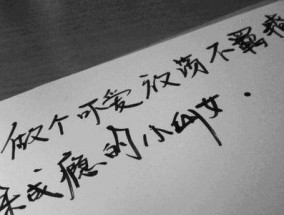 做个可爱放荡不羁
成瘾的小幼女.